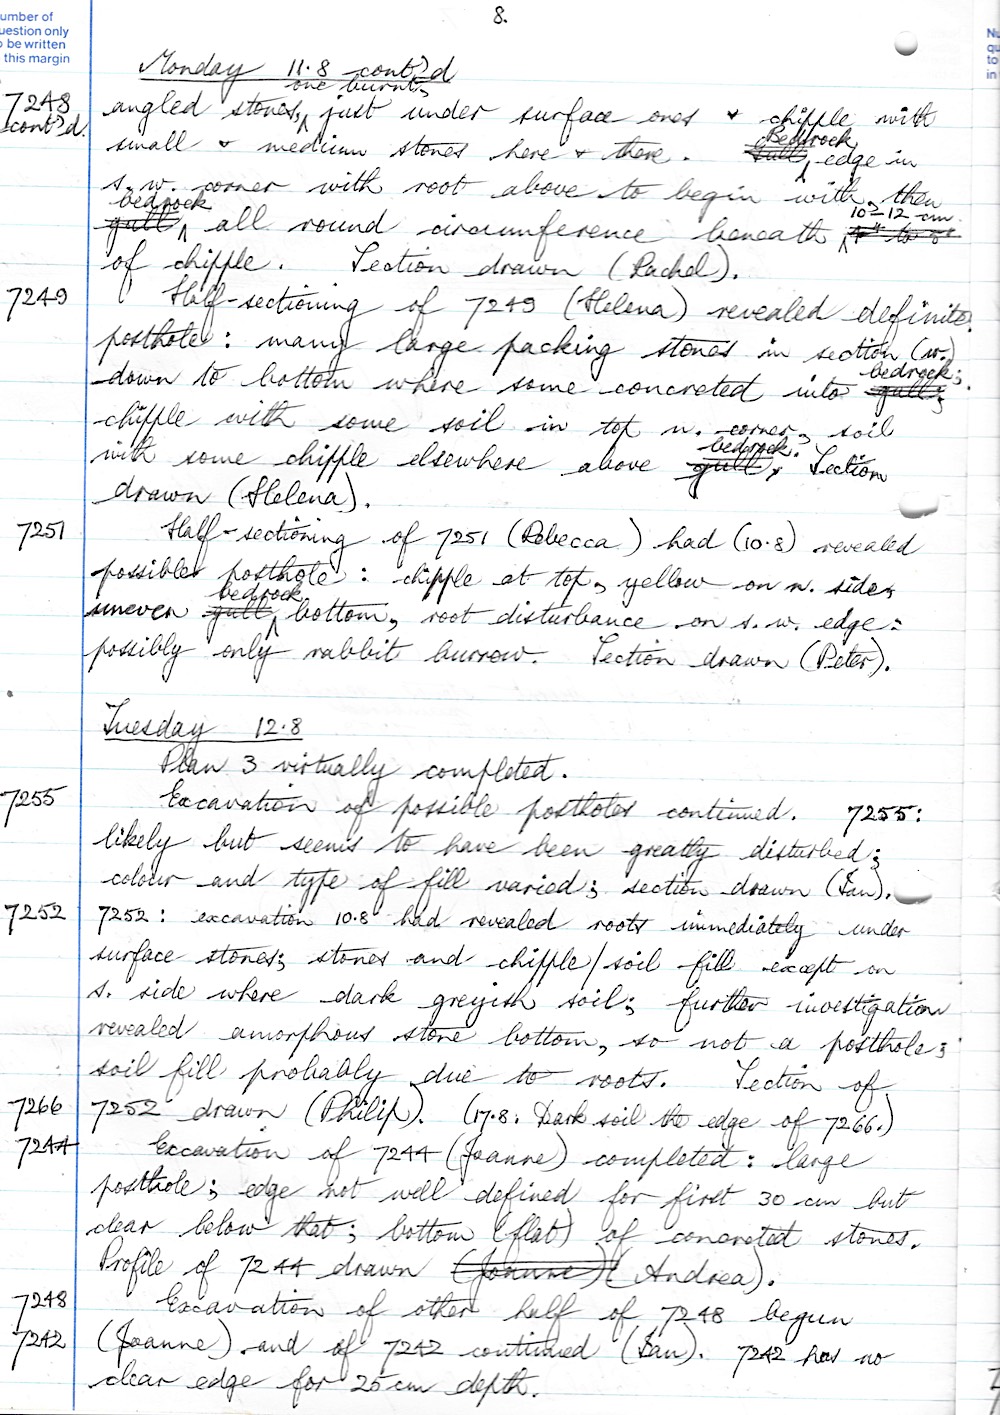 8.
umber of
uestion only
o be written
this margin
Nu
qu
to
in
Monday 11.8 cont'd
one burnt,
7248 angled stones, just under surface ones + chipple with
cont'd. small + medium stones here + there. gull Bedrock edge in
s.w. corner with root above to begin with, then
gull bedrock all round circumference beneath 4" to 5" 10-12 cm
of chipple. Section drawn (Rachel).
7249 Half-sectioning of 7249 (Helena) revealed definite
posthole: many large packing stones in section (w.)
down to bottom where some concreted into gull; bedrock;
chipple with some soil in top n. corner, soil
with some chipple elsewhere above gull. bedrock. Section
drawn (Helena).
7251 Half-sectioning of 7251 (Rebecca) had (10.8) revealed
possible posthole: chipple at top, yellow on n. side,
uneven gull bedrock bottom, root disturbance on s.w. edge:
possibly only rabbit burrow. Section drawn (Peter).
Tuesday 12.8
Plan 3 virtually completed.
7255 Excavation of possible postholes continued. 7255:
likely but seems to have been greatly disturbed;
colour and type of fill varied; section drawn (Ian).
7252 7252: excavation 10.8 had revealed roots immediately under
surface stones; stones and chipple/soil fill except on
s. side where dark greyish soil; further investigation
revealed amorphous stone bottom, so not a posthole;
soil fill probably due to roots. Section of
7266 7252 drawn (Philip). (17.8: Dark soil the edge of 7266.)
7244 Excavation of 7244 (Joanne) completed: large
posthole; edge not well defined for first 30 cm but
clear below that; bottom (flat) of concreted stones.
Profile of 7244 drawn (Joanne) (Andrea).
7248 Excavation of other half of 7248 begun
7242 (Joanne) and of 7242 continued (Ian). 7242 has no
clear edge for 25cm depth.